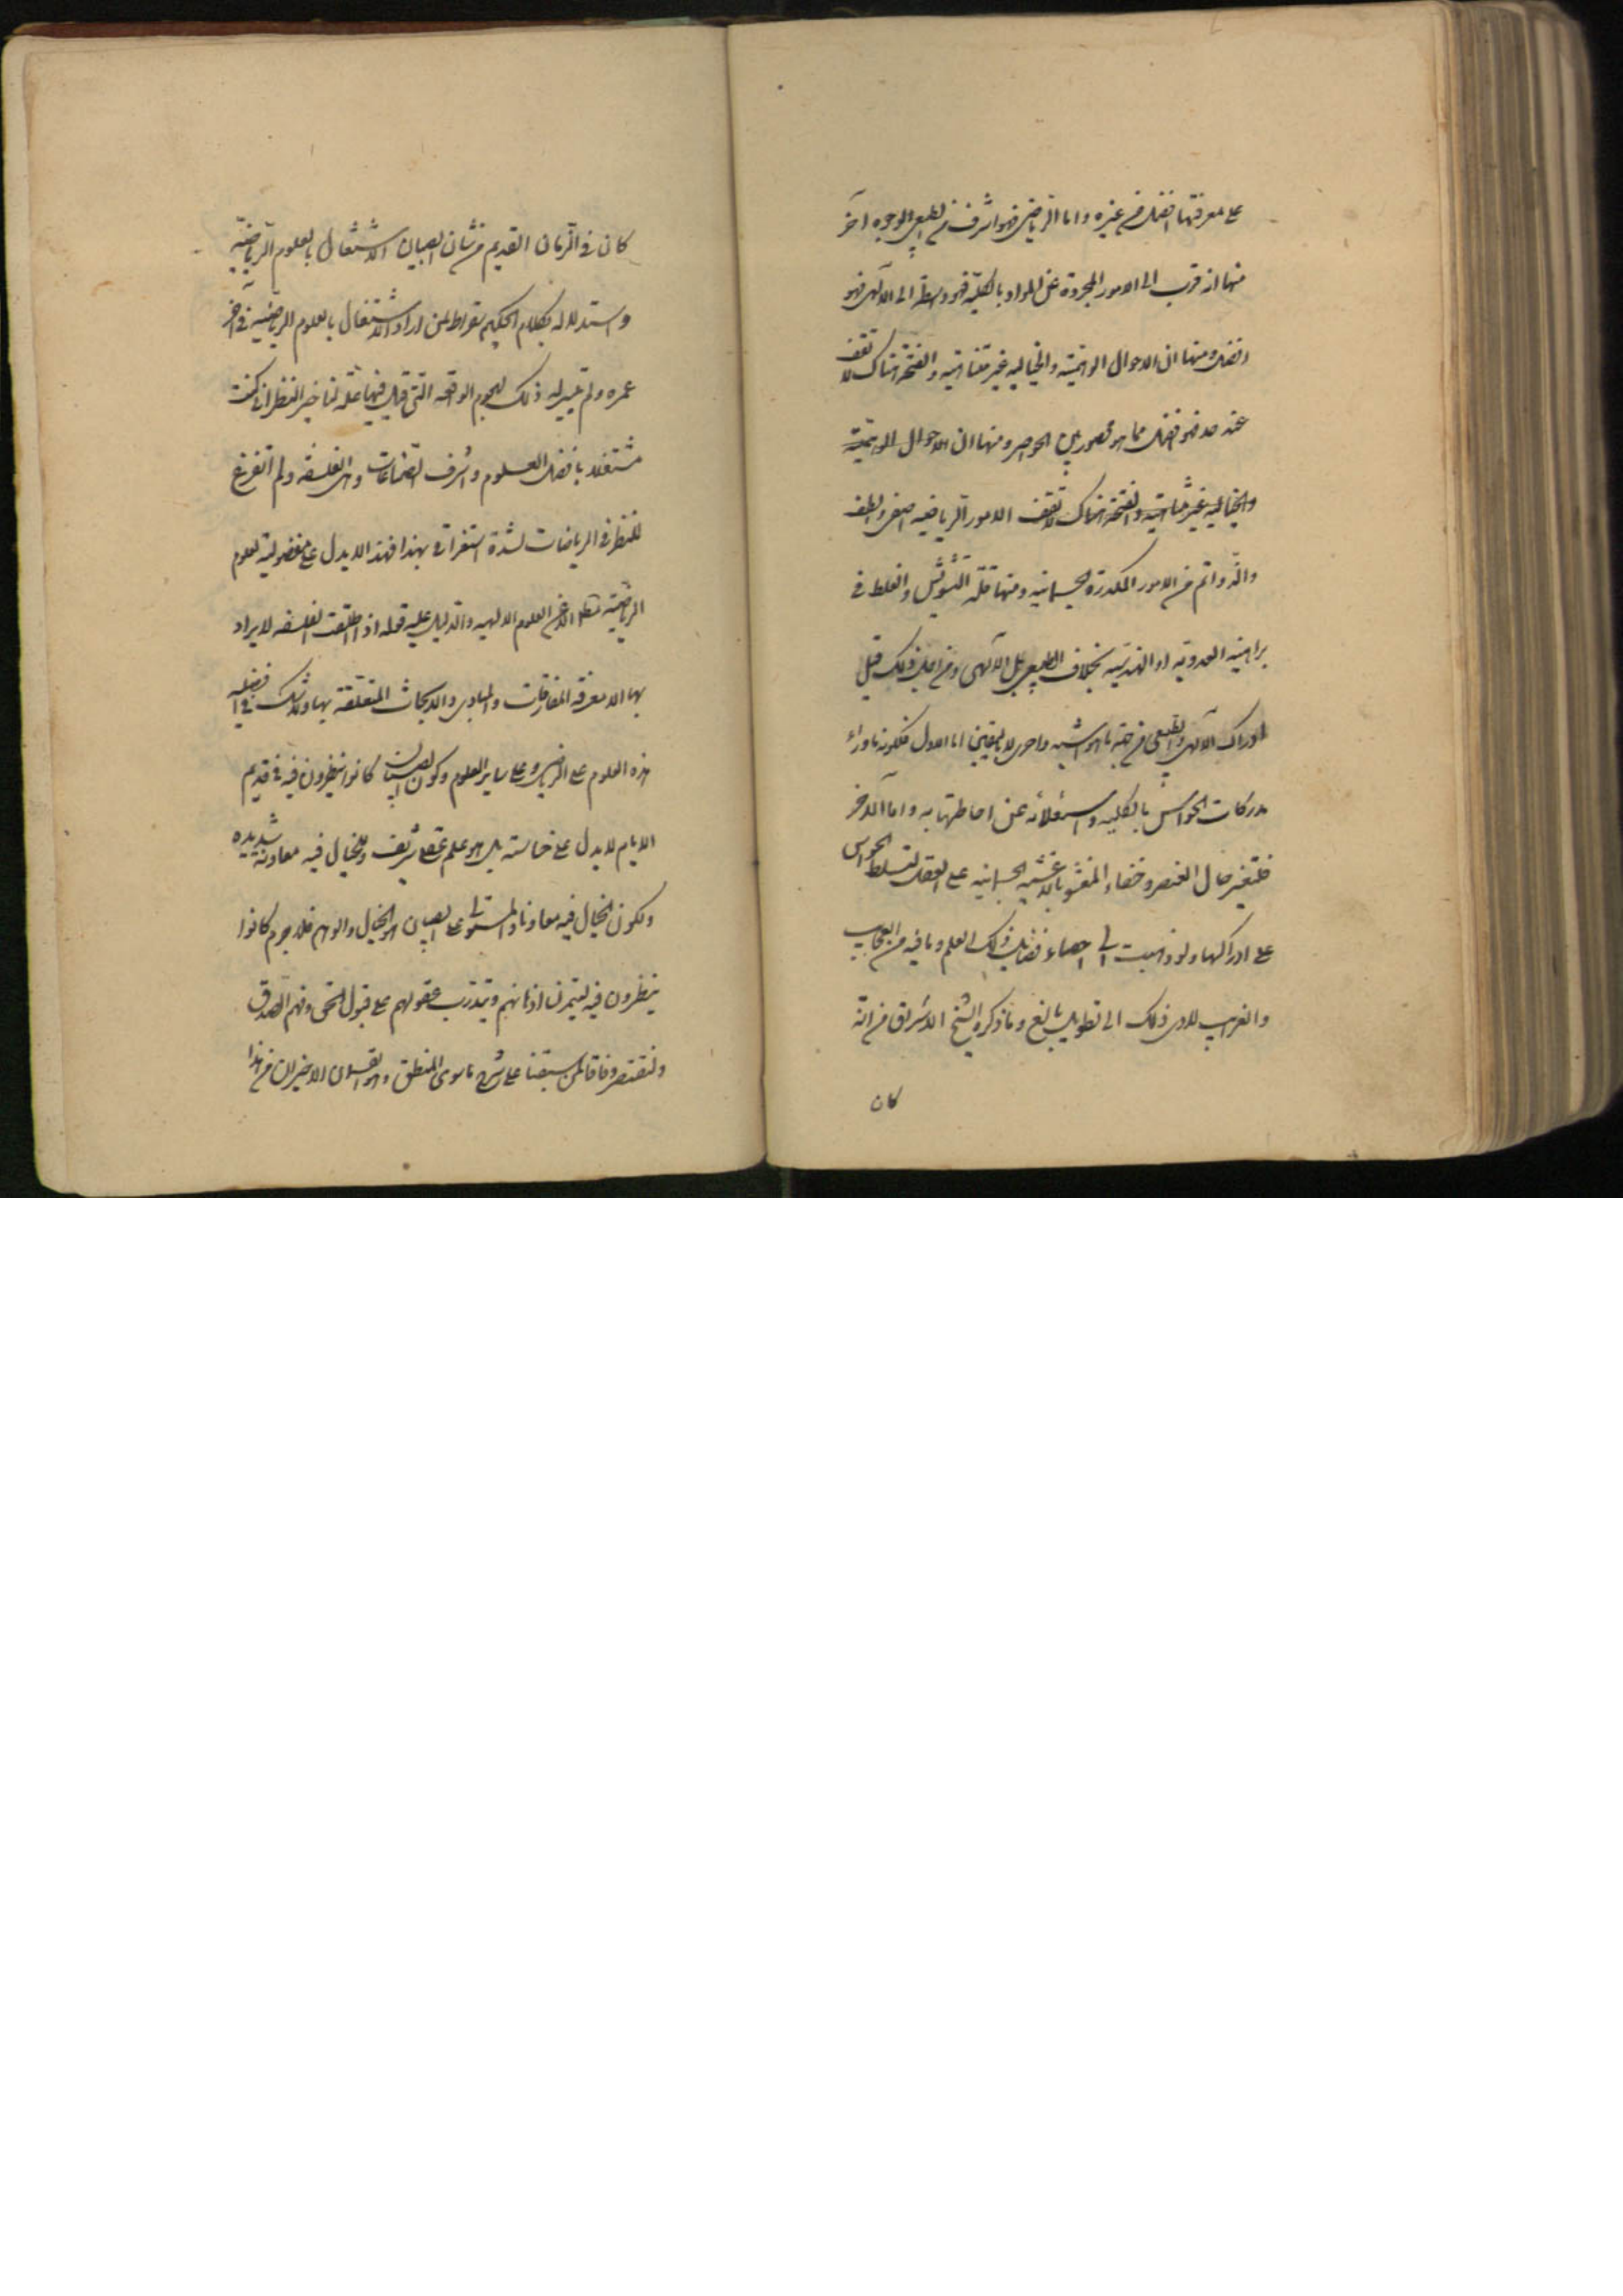 على معرفتها افضل من غيره واما الرياضى فهو اشرف من الطبيعى لوجوه آخر
منها انه قرب الى الامور المجردة عن المواد بالكلية فهو وسطة الى الالهى فهو
افضل ومنها ان الاحوال الوهمية والخيالية غير متناهية والفتحة هناك لا تقف
عند حد فهو افضل مما هو محصور بين الحواصر ومنها ان الاحوال الوهمية
والخيالية غير متناهية والفتحة هناك لا تقف الامور الرياضيه اصفى والطف
والذ واتم من الامور المكدرة الجسمانيه ومنها قلة التشويش والغلط فى
براهينه العددية او الهندسية بخلاف الطبيعى بل الالهى ومن اجل ذلك قيل
ادراك الالهى والطبيعى من جهة ما هو اشبه واحرى لا باليقين اما الاول فلكونه ما وراء
مدركات الحواس بالكليه واستعلائه عن احاطتها به واما الاخر
فلتغير حال العنصر وخفاء المغشو بالاغشيه الجسمانيه على العقل لتسلط الحواس
على ادراكها ولو ذهبت الى احصاء فضايل ذلك العلم وما فيه من العجايب
والغرايب لادى ذلك الى تطويل بالغ وما ذكره الشيخ الاشراق من انّه
كان
كان فى الزمان القديم من شان الصبيان الاشتغال بالعلوم الرياضيّه
واستدلاله بكلام الحكيم سقراط لمن اراد الاشتغال بالعلوم الرياضيّه فى آخر
عمره ولم تيسر له ذلك لهجوم الواقعه التى قيل فيها علة تاخير النظر انى كنت
مشتغلا بافضل العلوم واشرف الصناعات وهى الفلسفه ولم اتفرغ
للنظر فى الرياضات لشدة استغراقى بهذا فهذا لا يدل على مفضولية لعلوم
الرياضيّه مطلقا الا عن العلوم الالهيه والدليل عليه قوله اذا اطلقت الفلسفه لا يراد
بها الا معرفة المفارقات والمبادى والابحاث المتعلقة بها ولا شك فى افضليه
هذه العلوم على الرياضى وعلى ساير العلوم وكون الصبيان كانوا ينظرون فيه فى قديم
الايام لا يدل على خساسته بل هو علم عقلى شريف وللخيال فيه معاونة شديده
ولكون الخيال فيه معاونا والمستولى على الصبيان هو الخيال والوهم فلا جرم كانوا
ينظرون فيه ليتمرن اذهانهم ويتدرب عقولهم على قبول الحق وفهم الصدق
ولنقتصر وفاقا لمن سبقنا على شرح ما سوى المنطق وهو القسمان الاخيران من هذا